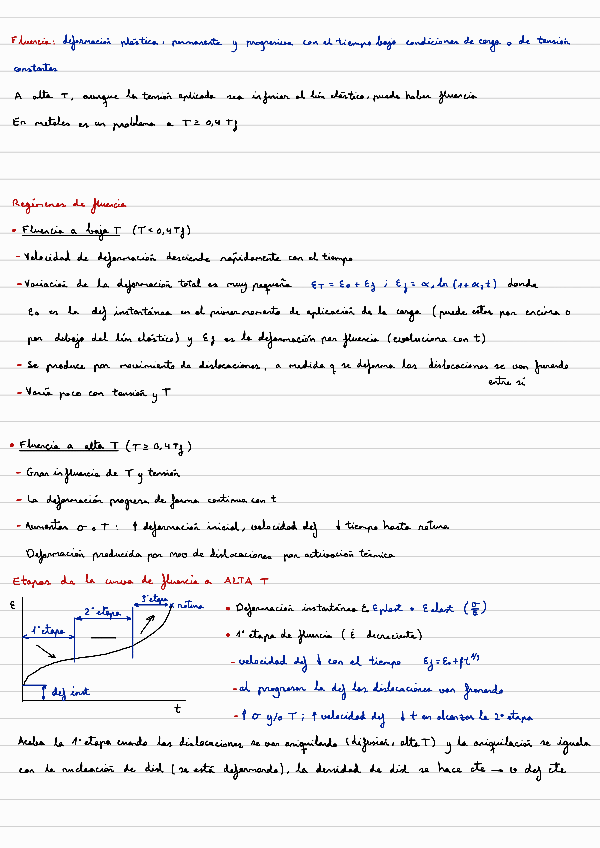 Fluencia: deformación plástica, permanente y progresiva con el tiempo bajo condiciones de carga o de tensión
constantes
A alta T, aunque la tensión aplicada sea inferior al lím elástico, puede haber fluencia
En metales es un problema a T ≥ 0,4 Tf
Regímenes de fluencia
• Fluencia a baja T (T < 0,4 Tf)
- Velocidad de deformación desciende rápidamente con el tiempo
- Variación de la deformación total es muy pequeña εT = ε0 + εf ; εf = α1 ln (1+α2t) donde
ε0 es la def instantánea en el primer momento de aplicación de la carga (puede estar por encima o
por debajo del lím elástico) y εf es la deformación por fluencia (evoluciona con t)
- Se produce por movimiento de dislocaciones, a medida q se deforma las dislocaciones se van frenando
entre sí
- Varía poco con tensión y T
• Fluencia a alta T (T ≥ 0,4 Tf)
- Gran influencia de T y tensión
- La deformación progresa de forma continua con t
- Aumentar σ o T : ↑ deformación inicial, velocidad def ↓ tiempo hasta rotura
Deformación producida por mov de dislocaciones por activación térmica
Etapas de la curva de fluencia a ALTA T
ε
1ª etapa
2ª etapa
3ª etapa
rotura
def inst
t
• Deformación instantánea ε0 εplast + εelast (σ/E)
• 1ª etapa de fluencia (ε̇ decreciente)
- velocidad def ↓ con el tiempo εf = ε0 + βt^1/3
- al progresar la def las dislocaciones van frenando
- ↑ σ y/o T ; ↑ velocidad def ↓ t en alcanzar la 2ª etapa
Acaba la 1ª etapa cuando las dislocaciones se van aniquilando (difusión, alta T) y la aniquilación se iguala
con la nucleación de disl (se está deformando), la densidad de disl se hace cte → v def cte